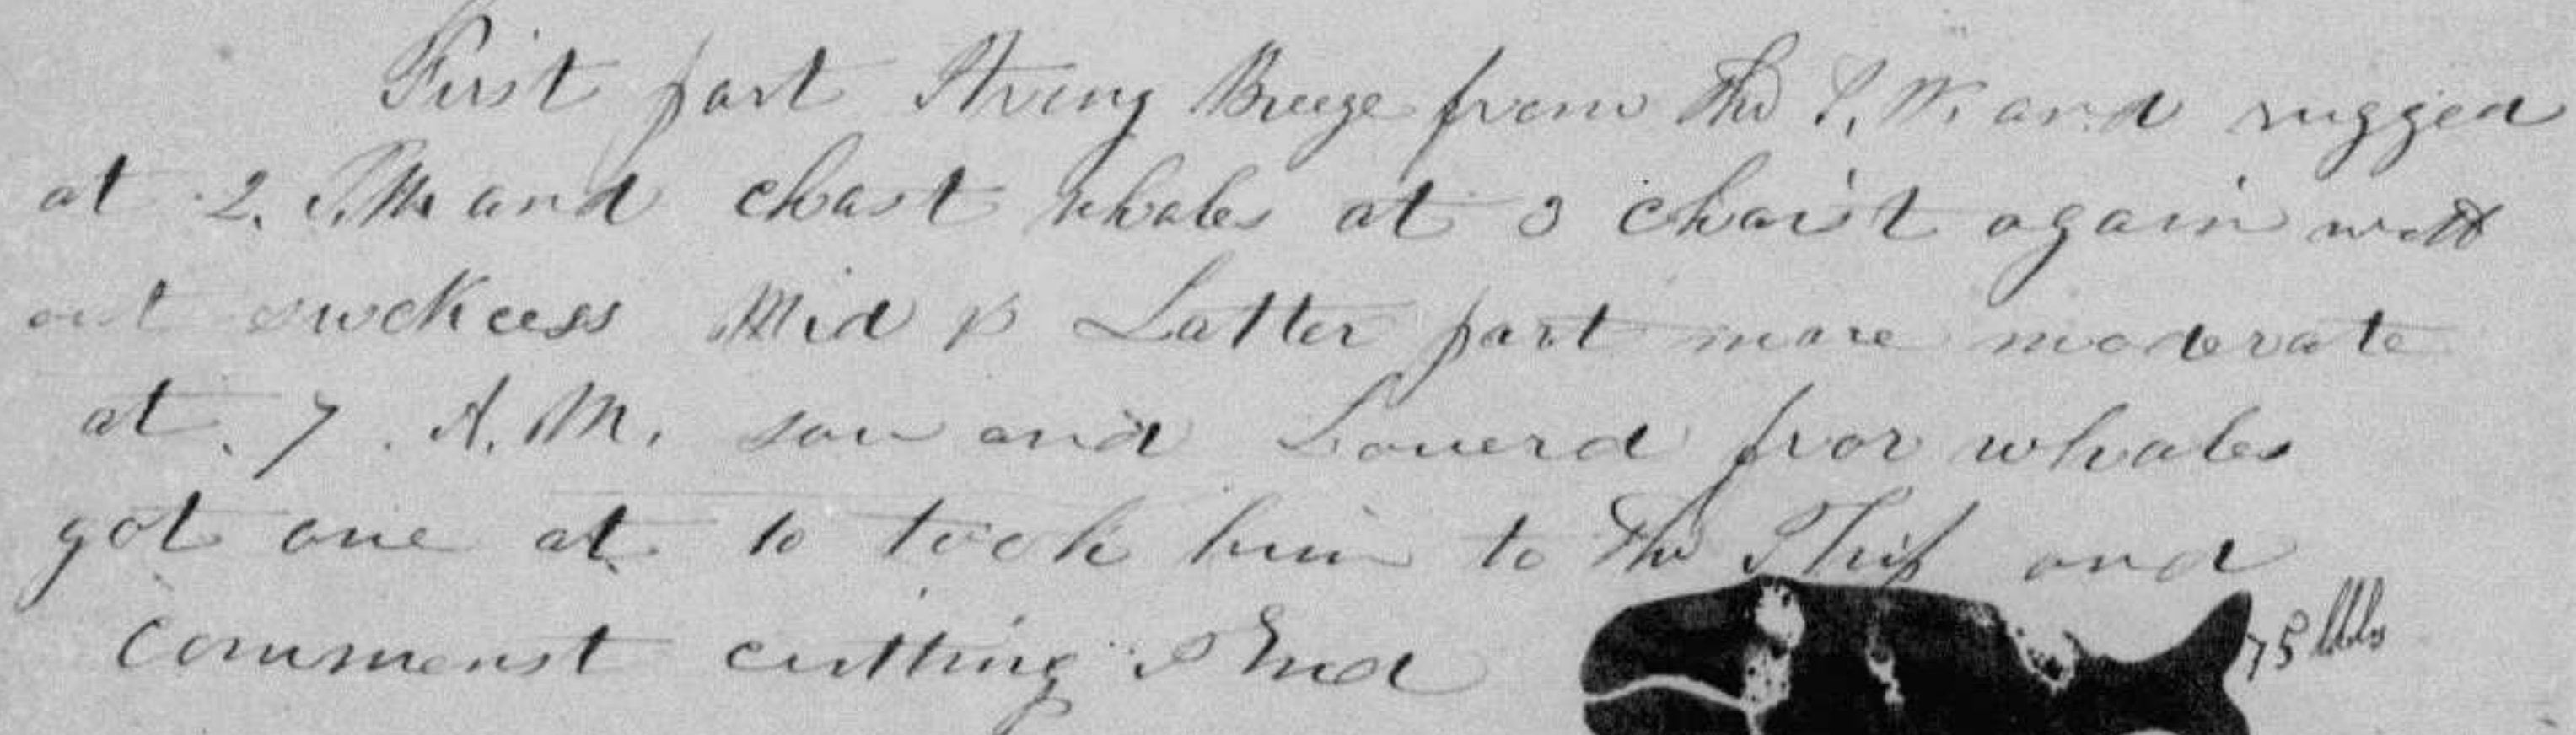 First part Strong Breeze from the S, W, and rugged
at 2. P.M. and chast whales at 3 chaist again with
out suckcess Mid & Latter part more moderate
at. 7. A. M. saw and Lowerd fror whales
got one at 10 took him to the Ship and
commenst cutting So End
75 bbls